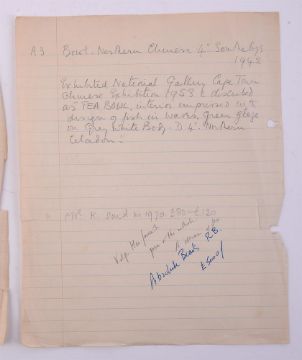 A3 Bowl. Northern Chinese 4"
1948
Exhibited National Gallery Cape Town
Chinese Exhibition 1953 & described
as TEA BOWL, interior impressed with
design of fish in waves, green glaze
on Grey White Body. D 4". Northern
Celadon.
Mr. K. Said in 1970 £80-£120
Absolute Beauty R.B.
£5000/